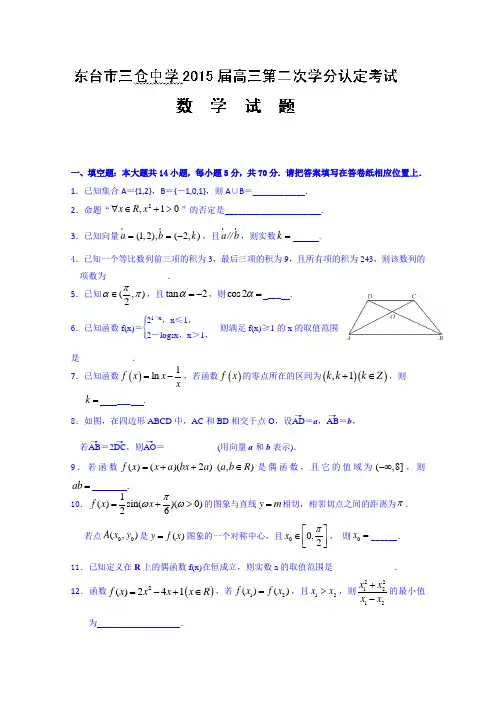 东台市三仓中学2015届高三第二次学分认定考试
数 学 试 题
一、填空题：本大题共14小题，每小题5分，共70分．请把答案填写在答卷纸相应位置上．
1．已知集合A＝{1,2}，B＝{－1,0,1}，则A∪B＝____________．
2．命题“∀x∈R, x²+1>0”的否定是______________________．
3．已知向量a=(1,2), b=(-2,k)，且a//b，则实数k=______．
4．已知一个等比数列前三项的积为3，最后三项的积为9，且所有项的积为243，则该数列的
项数为______________．
5．已知α∈(π/2,π)，且tanα=-2，则cos2α=______．
6．已知函数f(x)＝{2^(1－x)，x≤1，
2－log₂x，x＞1， 则满足f(x)≥1的x的取值范围
是____________．
7．已知函数f(x)=ln x-1/x，若函数f(x)的零点所在的区间为(k,k+1)(k∈Z)，则
k=______．
8．如图，在四边形ABCD中，AC和BD相交于点O，设AD→＝a，AB→＝b，
若AB→＝2DC→，则AO→＝____________(用向量a和b表示)．
9．若函数f(x)=(x+a)(bx+2a) (a,b∈R)是偶函数，且它的值域为(-∞,8]，则
ab=________．
10．f(x)=1/2 sin(ωx+π/6)(ω>0)的图象与直线y=m相切，相邻切点之间的距离为π．
若点A(x₀,y₀)是y=f(x)图象的一个对称中心，且x₀∈[0,π/2]，则x₀=______．
11．已知定义在R上的偶函数f(x)在恒成立，则实数a的取值范围是______________．
12．函数f(x)=2x²-4x+1(x∈R)，若f(x₁)=f(x₂)，且x₁>x₂，则(x₁²+x₂²)/(x₁-x₂)的最小值
为__________________．
D
C
O
A
B